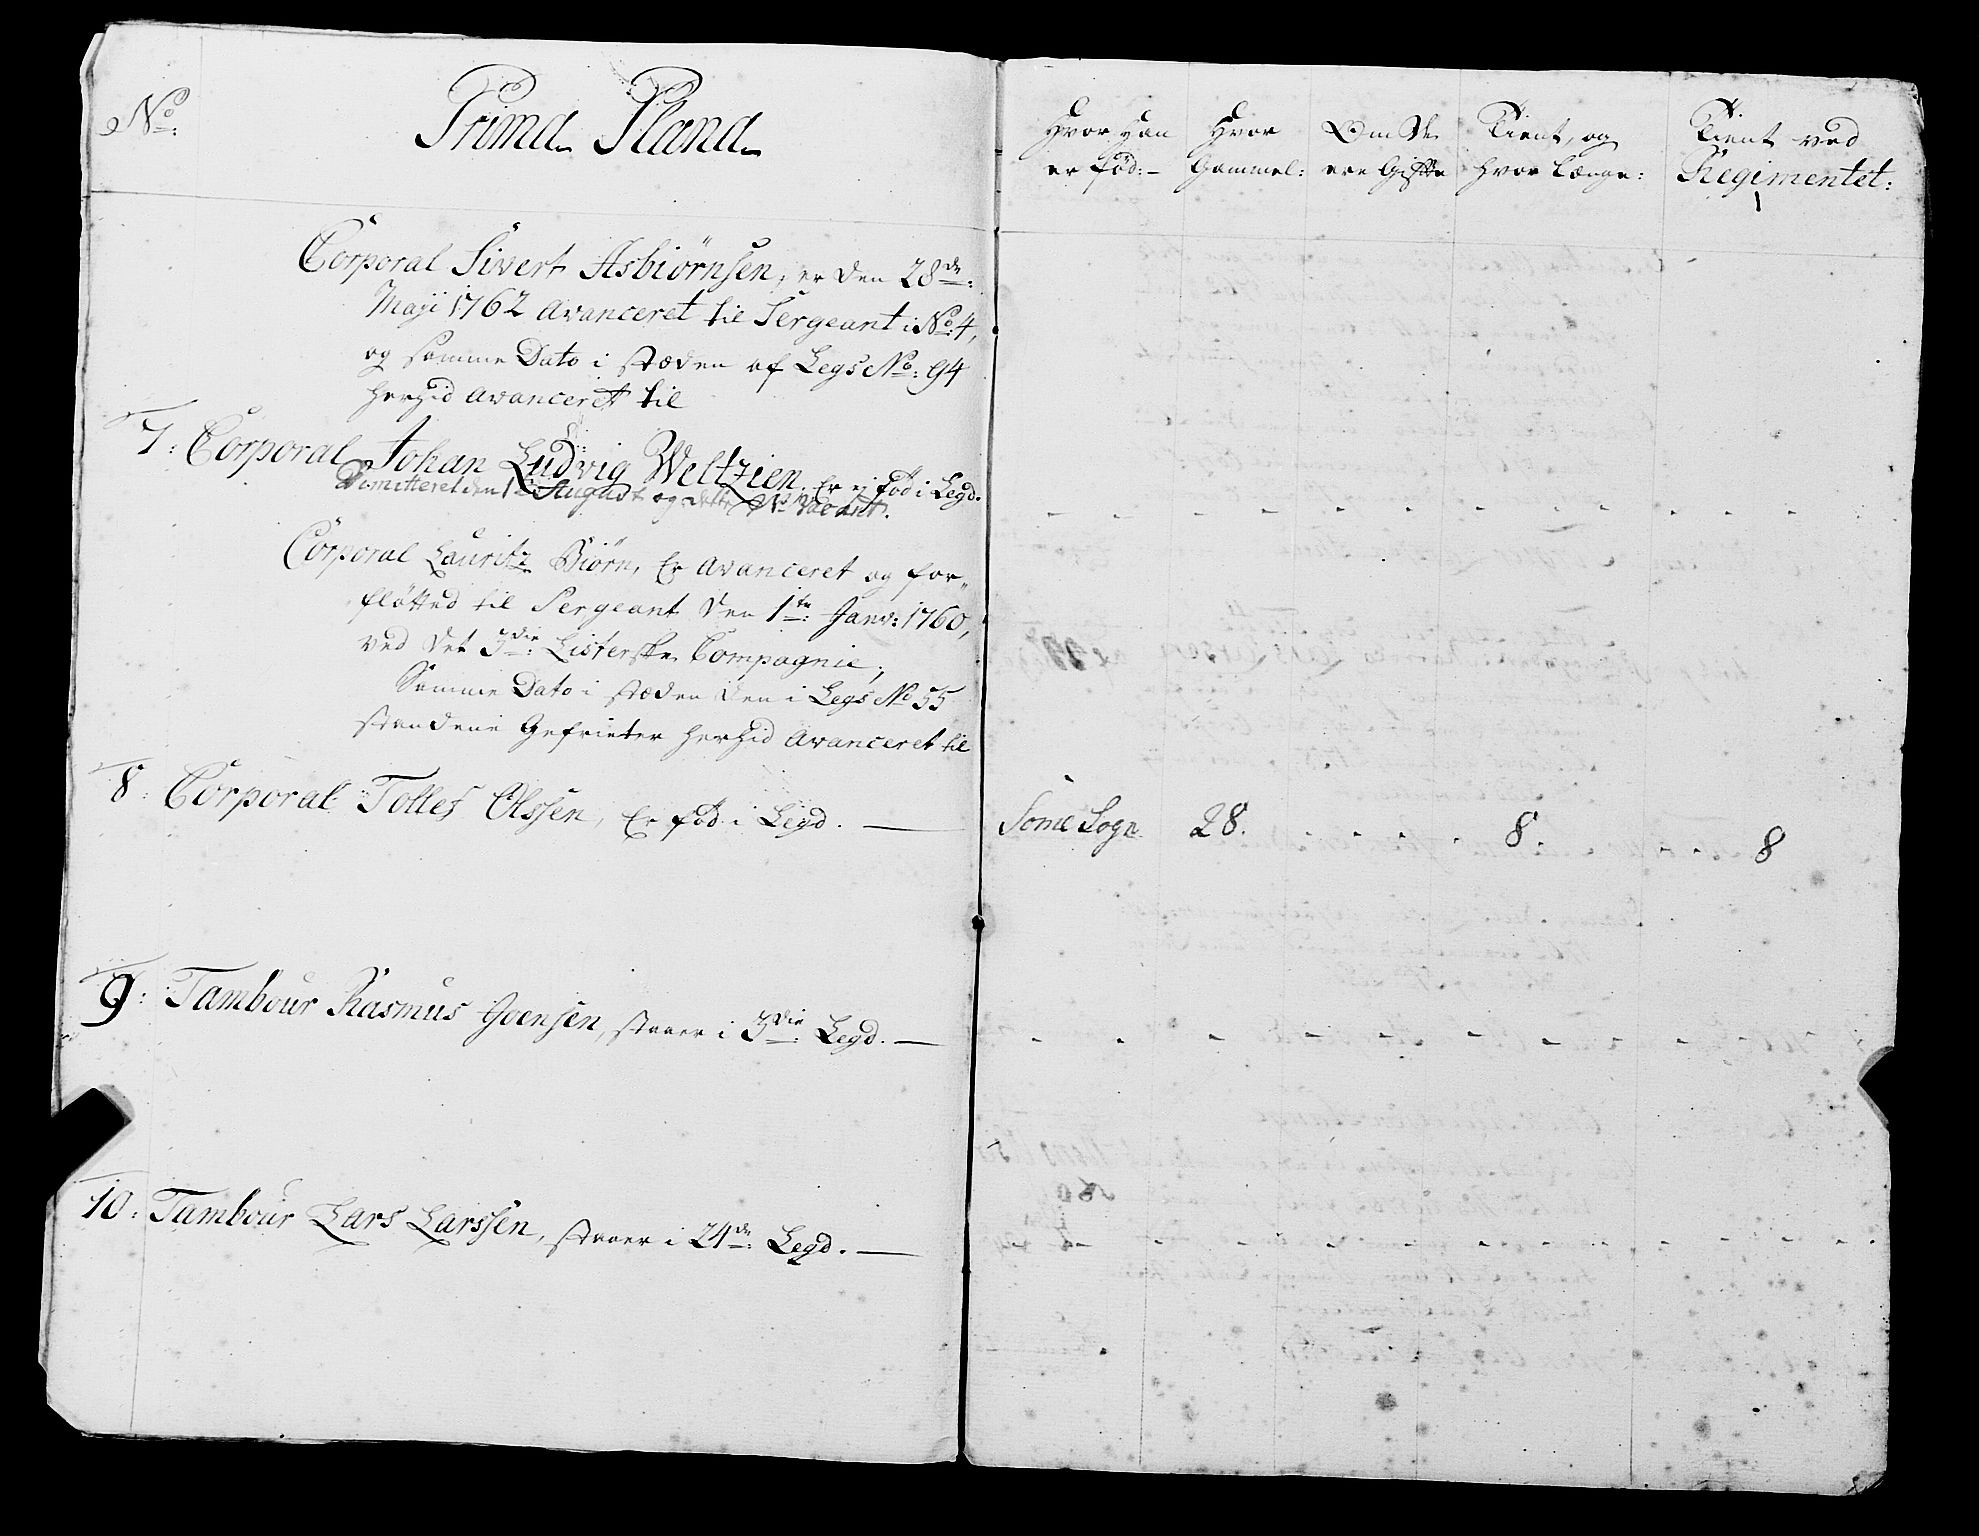 No:
Prima Plana
Hvor Han
er fød:
Hvor
Gammel:
Om De
ere Gifte
Tient, og
hvor Længe:
Tient ved
Regimentet:
Corporal Sivert Asbiørnsen, er den 28de:
Maji 1762 Avanceret til Sergeant i No: 4,
og samme Dato i stæden af Legs No: 94
herhid Avanceret til
7: Corporal Johan Ludvig Weltzien. Er ej fød i Legd.
Dimitteret den 1te August og dette No Vacant.
Corporal Lauritz Biørn, Er Avanceret og for-
fløtted til Sergeant den 1te: Janv: 1760,
ved det 3die: Listerske Compagnie,
Samme Dato i stæden den i Legs No 55
standene Gefrieter herhid Avanceret til
8: Corporal Tollef Olssen, Er fød i Legd. — Some Sogn 28. 8. 8
9: Tambour Rasmus Goensen, staaer i 3die: Legd. —
10: Tambour Lars Larssen, staaer i 24de: Legd. —